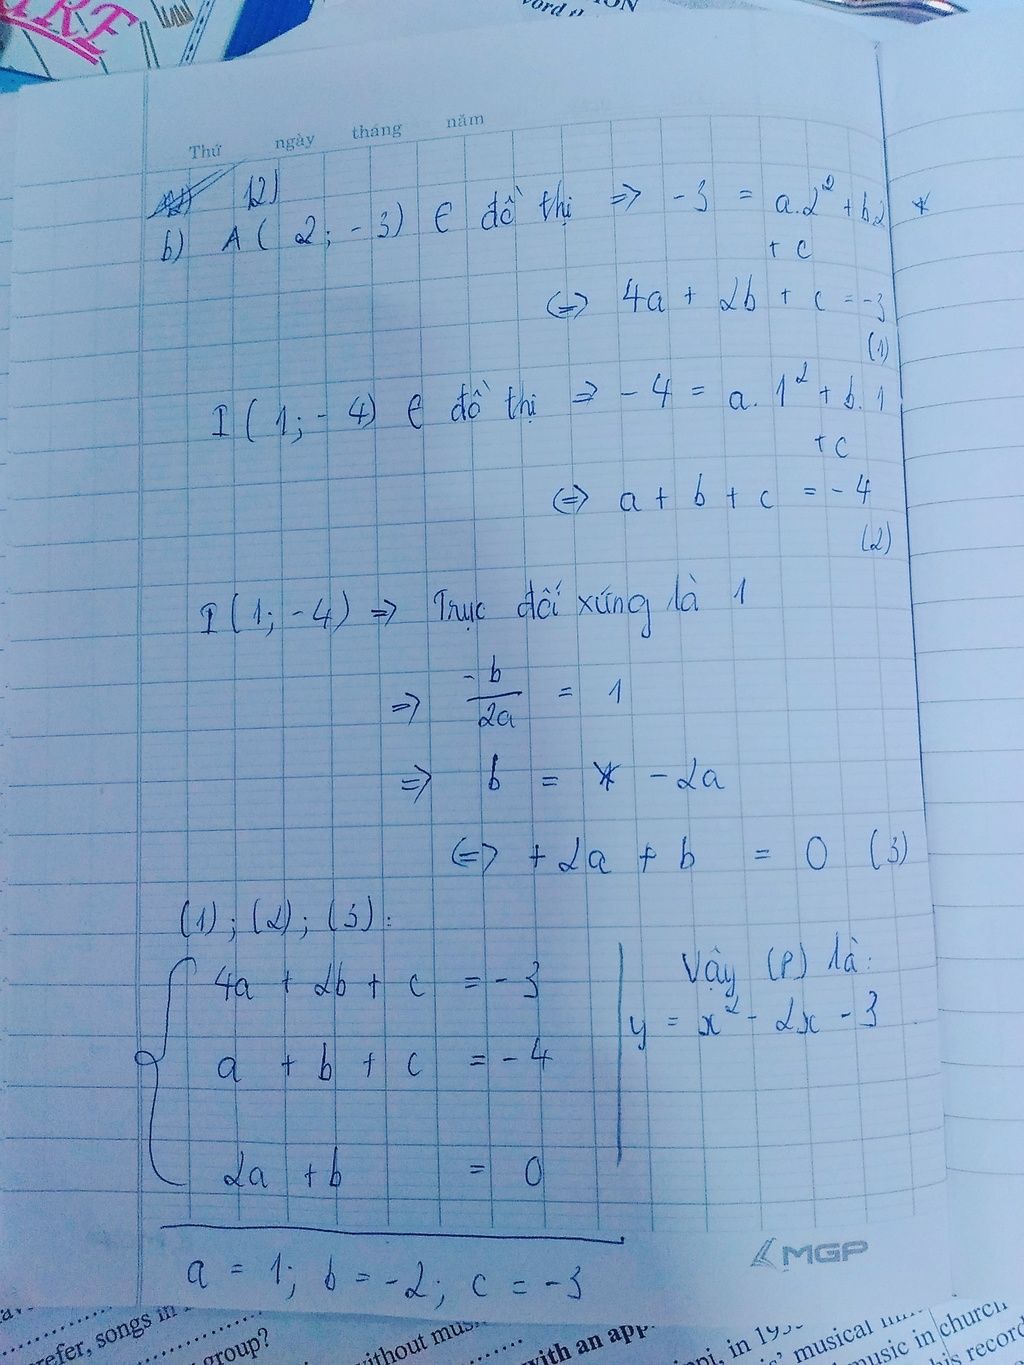 ION
word
Thứ ngày tháng năm
12)
b) A( 2; -3) ∈ đồ thị => -3 = a.2² + b.2
+ c
<=> 4a + 2b + c = -3
(1)
I( 1; -4) ∈ đồ thị => -4 = a. 1² + b. 1
+c
<=> a + b + c = -4
(2)
I(1; -4) => Trục đối xứng là 1
=> -b/2a = 1
=> b = -2a
<=> +2a + b = 0 (3)
(1); (2); (3):
4a + 2b + c = -3
a + b + c = -4
2a + b = 0
Vậy (P) là:
y = x² - 2x - 3
MGP
a = 1; b = -2; c = -3
refer, songs in
group?
without
with an app
in
musical
music in church
record